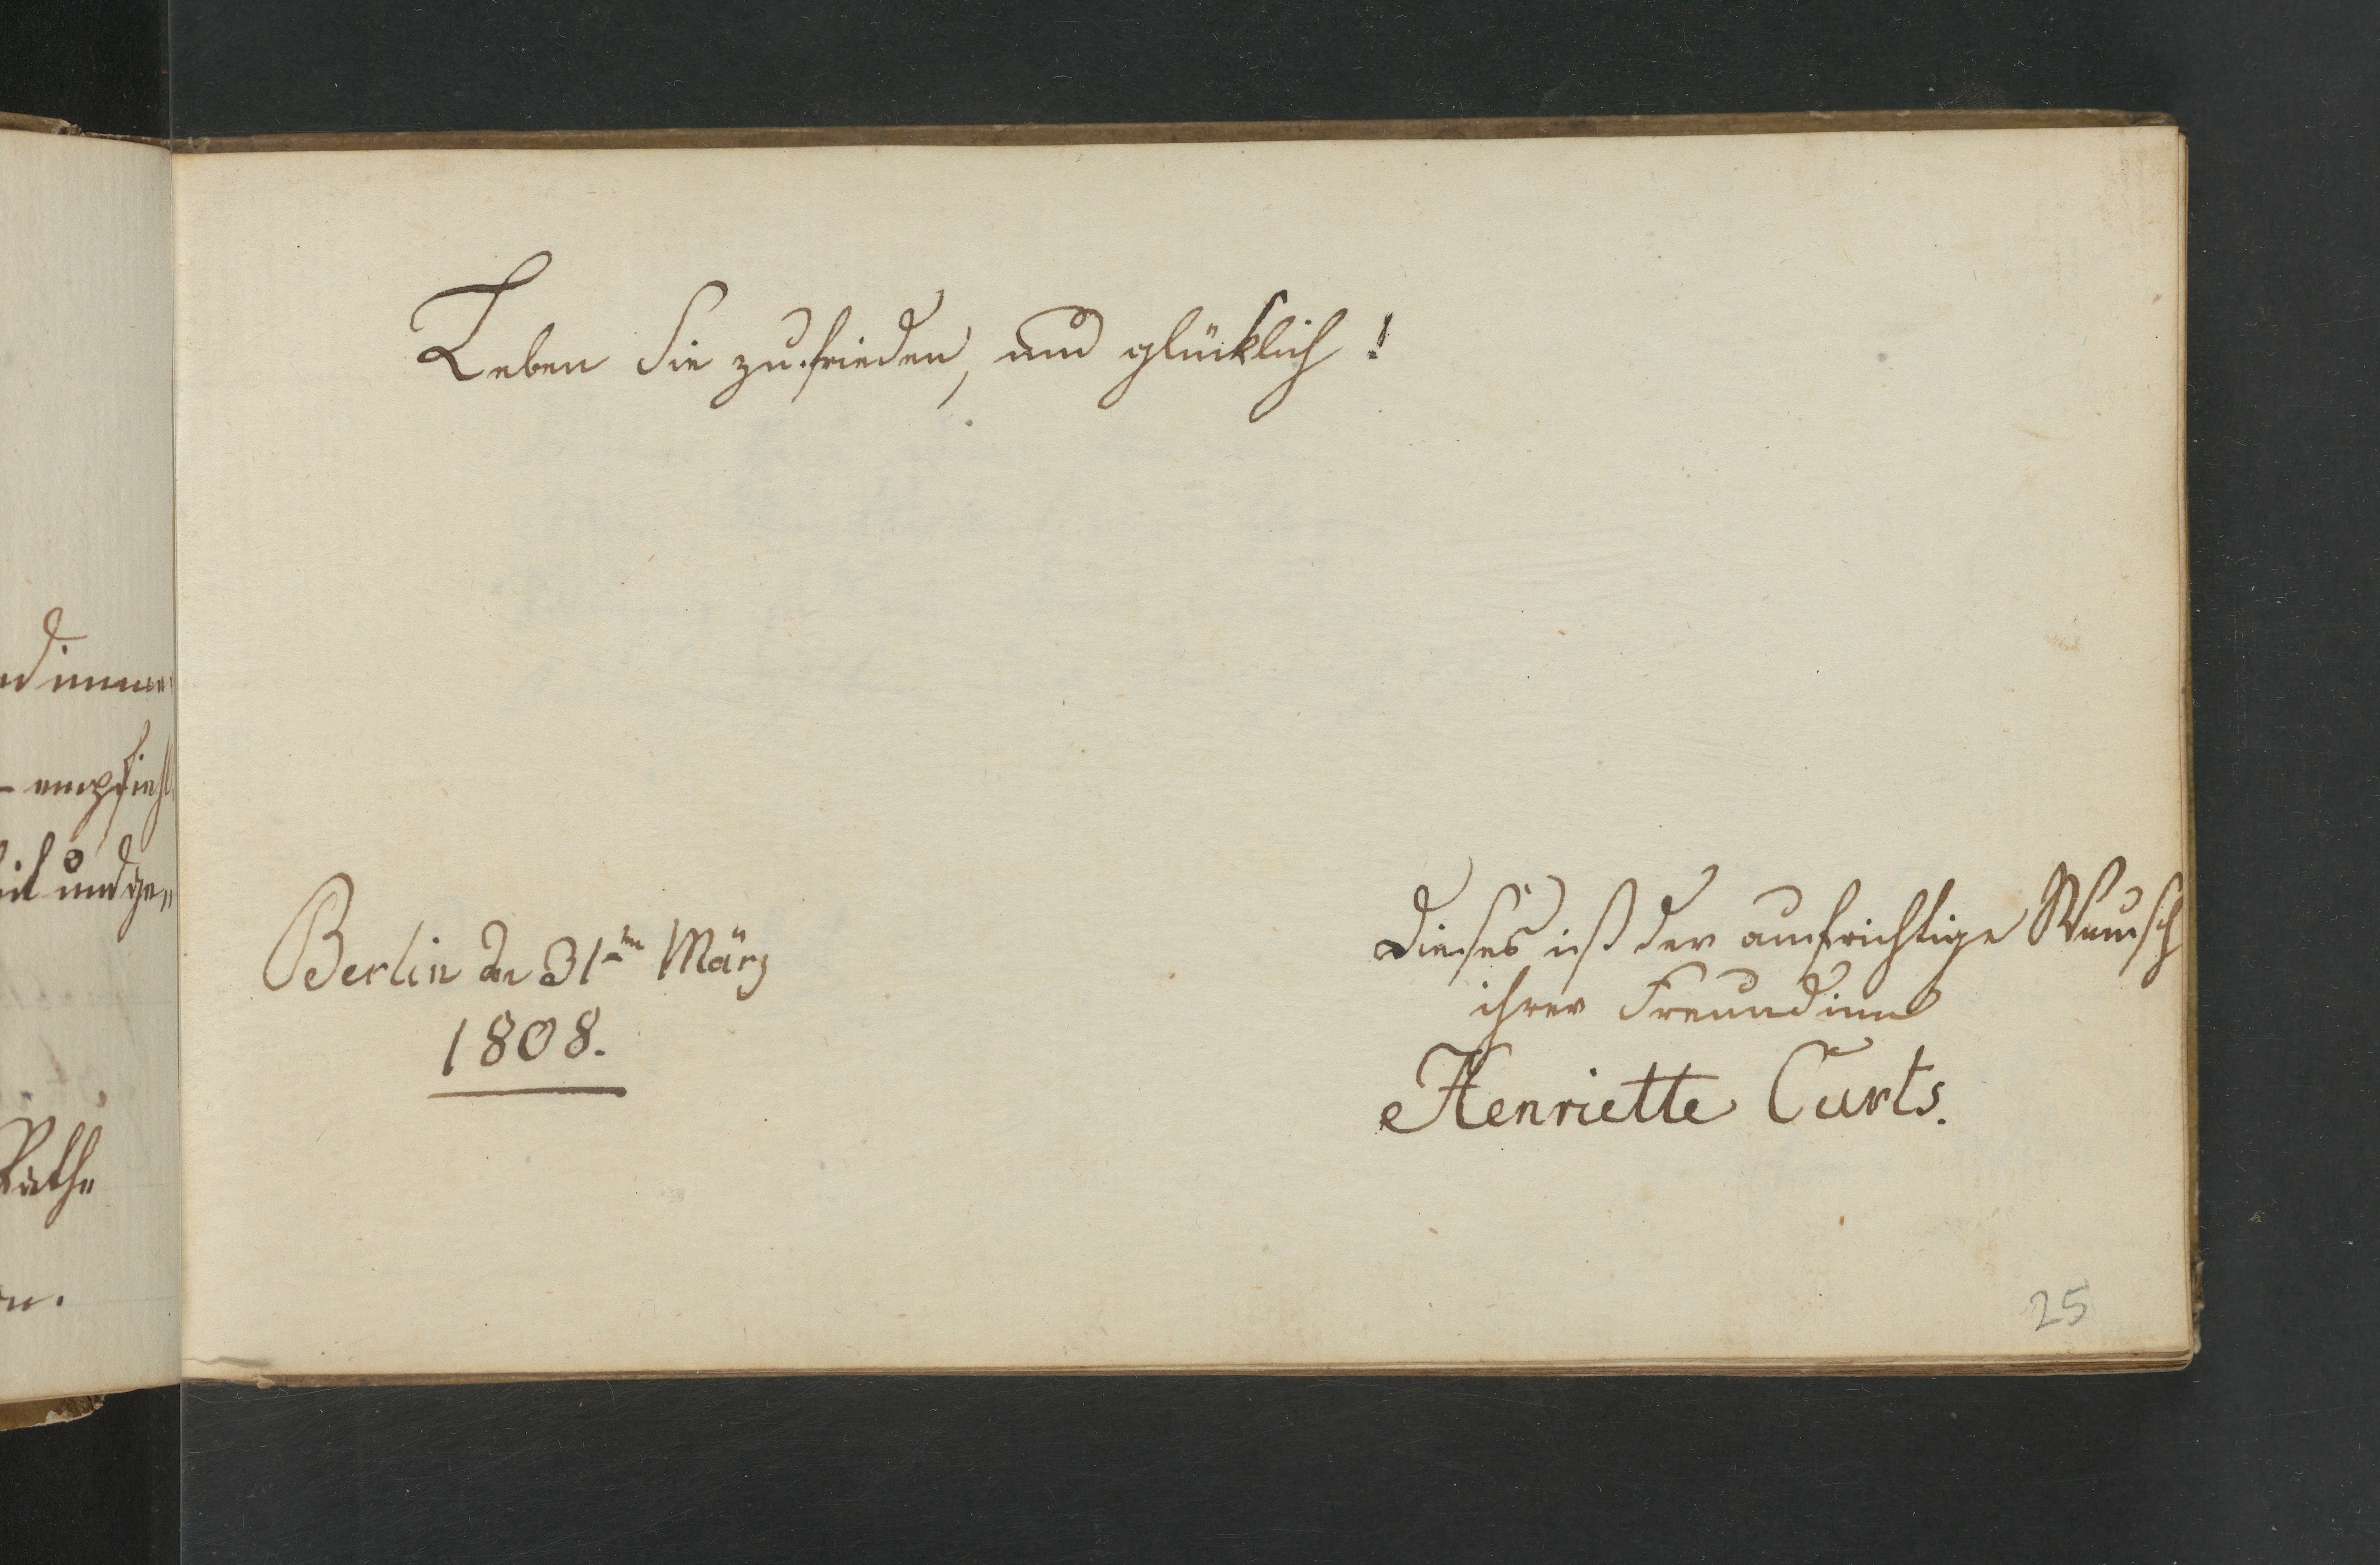 Leben Sie zufrieden, und glücklich!
Berlin den 31ten März
1808.
Dieses ist der aufrichtige Wunsch
ihrer Freundinn
Henriette Curts.
25
empfiehl